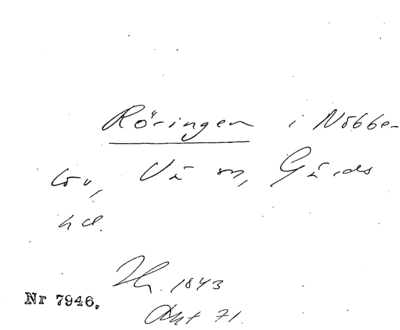 Röringen i Nöbbe-
löv, Vä sn, Gärds
hd.
Hr. 1843
Akt 71.
Nr 7946.